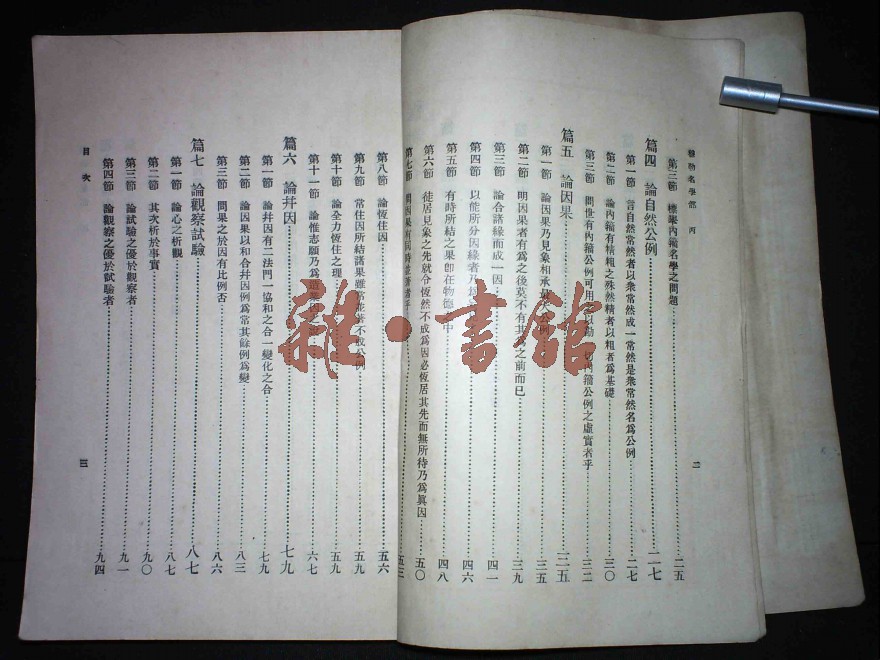 穆勒名學部 丙
第三節 標舉內籀名學之問題 二五
篇四 論自然公例 二一七
第一節 言自然常然者以衆常然成一常然是衆常然名爲公例 二七
第二節 論內籀有精粗之殊然精者以粗者爲基礎 三〇
第三節 問世有內籀公例可用之以勘一切內籀公例之虛實者乎 三二
篇五 論因果 三二五
第一節 論因果乃見象相承 三五
第二節 明因果者有爲之後莫不有其爲之前而已 三九
第三節 論合諸緣而成一因 四一
第四節 以能所分因緣者乃 四六
第五節 有時所結之果卽在物德之中 四八
第六節 徒居見象之先就令恆然不成爲因必恆居其先而無所待乃爲眞因 五〇
二
第七節 問因果有同時並著者乎 五三
第八節 論恆住因 五六
第九節 常住因所結諸果雖常並著不成公例 五九
第十節 論全力恆住之理 五九
第十一節 論惟志願乃爲造業因之說 六七
篇六 論幷因 七九
第一節 論幷因有二法門一協和之合一變化之合 七九
第二節 論因果以和合幷因例爲常其餘例爲變 八三
第三節 問果之於因有比例否 八六
篇七 論觀察試驗 八七
第一節 論心之析觀 八七
第二節 其次析於事實 九〇
第三節 論試驗之優於觀察者 九一
第四節 論觀察之優於試驗者 九四
目次
三
雜·書館